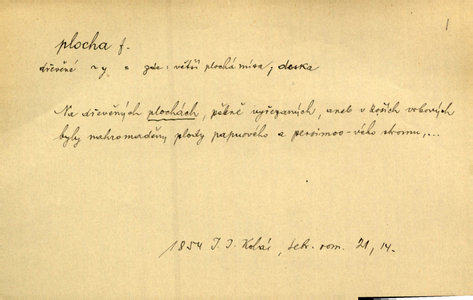 1
plocha f.
dřevěné ~y = zde: větší plochá mísa, deska
Na dřevěných plochách, pěkně vyřezaných, aneb v koších vrbových
byly nahromaděny plody papuového a persimoo-vého stromu,...
1854 J. J. Kolár, sebr. rom. 21, 14.